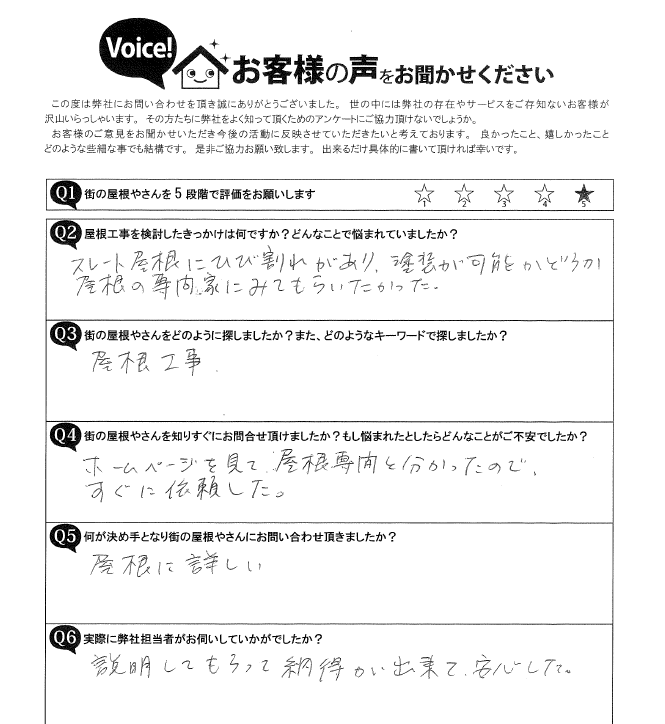 Voice!
お客様の声をお聞かせください
この度は弊社にお問い合わせを頂き誠にありがとうございました。 世の中には弊社の存在やサービスをご存知ないお客様が
沢山いらっしゃいます。 その方たちに弊社をよく知って頂くためのアンケートにご協力頂けないでしょうか。
お客様のご意見をお聞かせいただき今後の活動に反映させていただきたいと考えております。 良かったこと、嬉しかったこと
どのような些細な事でも結構です。 是非ご協力お願い致します。 出来るだけ具体的に書いて頂ければ幸いです。
Q1 街の屋根やさんを5段階で評価をお願いします
1 2 3 4 5
Q2 屋根工事を検討したきっかけは何ですか？どんなことで悩まれていましたか？
スレート屋根にひび割れがあり、塗装が可能かどうか
屋根の専門家にみてもらいたかった。
Q3 街の屋根やさんをどのように探しましたか？また、どのようなキーワードで探しましたか？
屋根工事
Q4 街の屋根やさんを知りすぐにお問合せ頂けましたか？もし悩まれたとしたらどんなことがご不安でしたか？
ホームページを見て、屋根専門と分かったので、
すぐに依頼した。
Q5 何が決め手となり街の屋根やさんにお問い合わせ頂きましたか？
屋根に詳しい
Q6 実際に弊社担当者がお伺いしていかがでしたか？
説明してもらって納得が出来て、安心した。